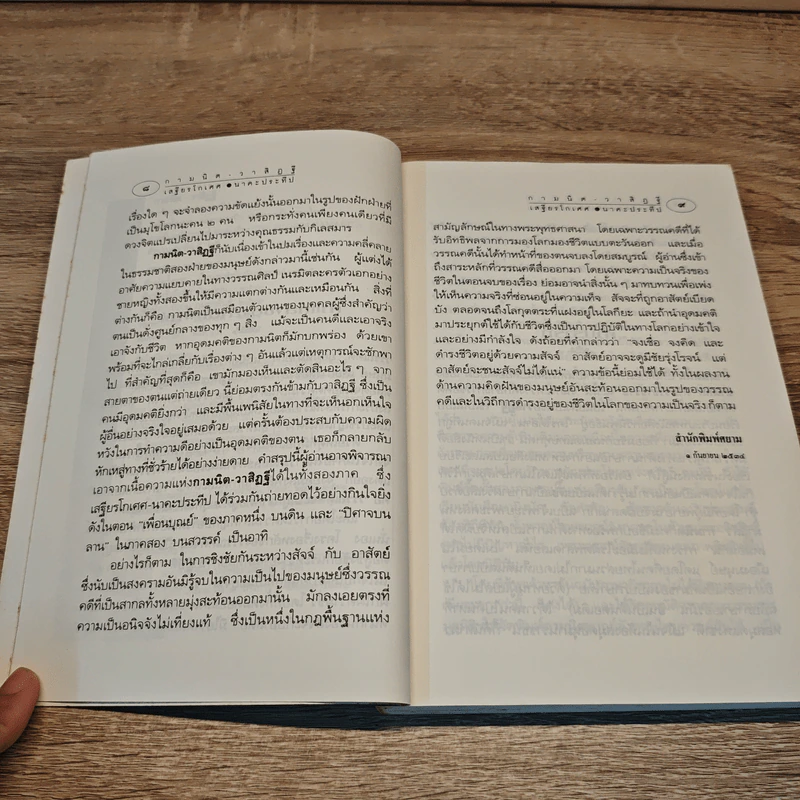 กามนิต-วาสิฏฐี
๘ เสฐียรโกเศศ ● นาคะประทีป
เรื่องใด ๆ จะจำลองความขัดแย้งนั้นออกมาในรูปของฝักฝ่ายที่
เป็นมุโขโลกนะคน ๒ คน หรือกระทั่งคนเพียงคนเดียวที่มี
ดวงจิตแปรเปลี่ยนไปมาระหว่างคุณธรรมกับกิเลสมาร
กามนิต-วาสิฏฐีก็นับเนื่องเข้าในปมเรื่องและความคลี่คลาย
ในธรรมชาติสองฝ่ายของมนุษย์ดังกล่าวมานี้เช่นกัน ผู้แต่งได้
อาศัยความแยบคายในทางวรรณศิลป์ เนรมิตละครตัวเอกอย่าง
ชายหญิงทั้งสองขึ้นให้มีความแตกต่างกันและเหมือนกัน สิ่งที่
ต่างกันก็คือ กามนิตเป็นเสมือนตัวแทนของบุคคลผู้ซึ่งสำคัญว่า
ตนเป็นดั่งศูนย์กลางของทุก ๆ สิ่ง แม้จะเป็นคนดีและเอาจริง
เอาจังกับชีวิต หากอุดมคติของกามนิตก็มักบกพร่อง ด้วยเขา
พร้อมที่จะไกล่เกลี่ยกับเรื่องต่าง ๆ อันแล้วแต่เหตุการณ์จะชักพา
ไป ที่สำคัญที่สุดก็คือ เขามักมองเห็นและตัดสินอะไร ๆ จาก
สายตาของตนแต่ถ่ายเดียว นี้ย่อมตรงกันข้ามกับวาสิฏฐี ซึ่งเป็น
คนมีอุดมคติยิ่งกว่า และมีพื้นเพนิสัยในทางที่จะเห็นอกเห็นใจ
ผู้อื่นอย่างจริงใจอยู่เสมอด้วย แต่ครั้นต้องประสบกับความผิด
หวังในการทำความดีอย่างเป็นอุดมคติของตน เธอก็กลายกลับ
หักเหสู่ทางที่ชั่วร้ายได้อย่างง่ายดาย คำสรุปนี้ผู้อ่านอาจพิจารณา
เอาจากเนื้อความแห่งกามนิต-วาสิฏฐีได้ในทั้งสองภาค ซึ่ง
เสฐียรโกเศศ-นาคะประทีป ได้ร่วมกันถ่ายทอดไว้อย่างกินใจยิ่ง
ดังในตอน "เพื่อนบุณย์" ของภาคหนึ่ง บนดิน และ "ปิศาจบน
ลาน" ในภาคสอง บนสวรรค์ เป็นอาทิ
อย่างไรก็ตาม ในการชิงชัยกันระหว่างสัจจ์ กับ อาสัตย์
ซึ่งนับเป็นสงครามอันมิรู้จบในความเป็นไปของมนุษย์ซึ่งวรรณ
คดีที่เป็นสากลทั้งหลายมุ่งสะท้อนออกมานั้น มักลงเอยตรงที่
ความเป็นอนิจจังไม่เที่ยงแท้ ซึ่งเป็นหนึ่งในกฎพื้นฐานแห่ง
กามนิต-วาสิฏฐี
เสฐียรโกเศศ ● นาคะประทีป ๙
สามัญลักษณ์ในทางพระพุทธศาสนา โดยเฉพาะวรรณคดีที่ได้
รับอิทธิพลจากการมองโลกมองชีวิตแบบตะวันออก และเมื่อ
วรรณคดีนั้นได้ทำหน้าที่ของตนจบลงโดยสมบูรณ์ ผู้อ่านซึ่งเข้า
ถึงสาระหลักที่วรรณคดีสื่อออกมา โดยเฉพาะความเป็นจริงของ
ชีวิตในตอนจบของเรื่อง ย่อมอาจนำสิ่งนั้น ๆ มาทบทวนเพื่อเพ่ง
ให้เห็นความจริงที่ซ่อนอยู่ในความเท็จ สัจจะที่ถูกอาสัตย์เบียด
บัง ตลอดจนถึงโลกุตตระที่แฝงอยู่ในโลกียะ และถ้านำอุดมคติ
มาประยุกต์ใช้ได้กับชีวิตซึ่งเป็นการปฏิบัติในทางโลกอย่างเข้าใจ
และอย่างมีกำลังใจ ดังถ้อยที่คำกล่าวว่า "จงเชื่อ จงคิด และ
ดำรงชีวิตอยู่ด้วยความสัจจ์ อาสัตย์อาจจะดูมีชัยรุ่งโรจน์ แต่
อาสัตย์จะชนะสัจจ์ไม่ได้แน่" ความข้อนี้ย่อมใช้ได้ ทั้งในผลงาน
ด้านความคิดฝันของมนุษย์อันสะท้อนออกมาในรูปของวรรณ
คดีและในวิถีการดำรงอยู่ของชีวิตในโลกของความเป็นจริง ก็ตาม
สำนักพิมพ์ศยาม
๑ กันยายน ๒๕๓๔